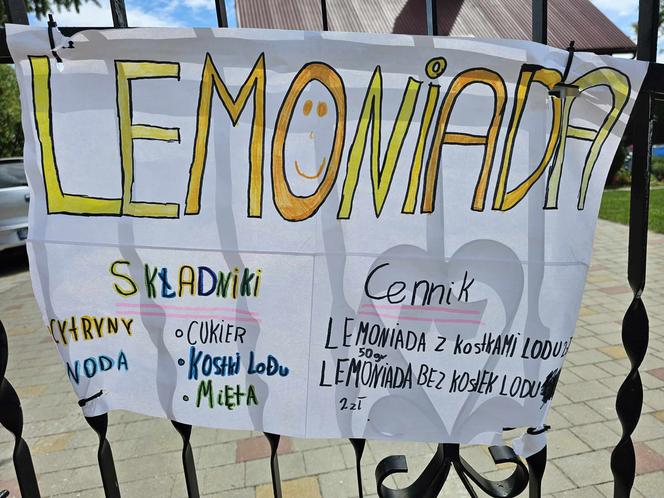 LEMONiADA
SKŁADNiKi
CYTRYNY
WODA
• CUKIER
• KOSTKi LODU
• MiĘTA
Cennik
LEMONIADA Z KOSTKAMI LODU 2zł
50gr
LEMONIADA BEZ KOSTEK LODU
2zł.